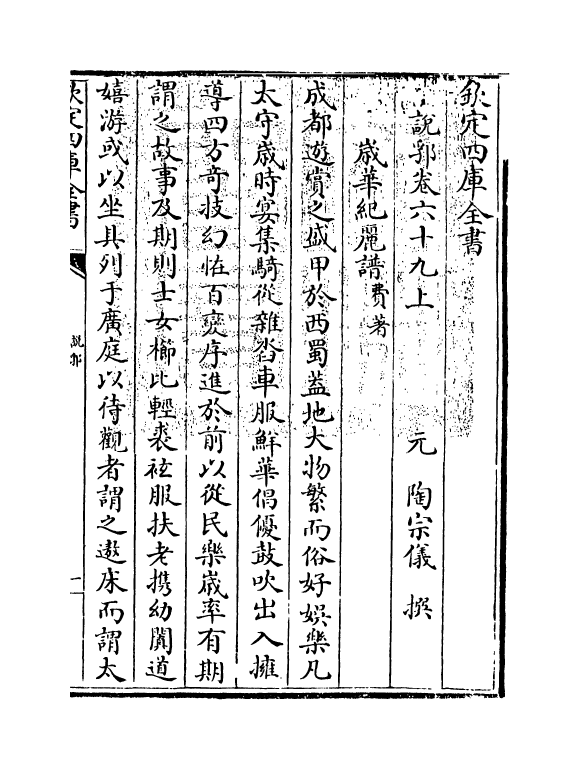 欽定四庫全書
說郛卷六十九上　元　陶宗儀　撰
歲華紀麗譜費著
成都遊賞之盛甲於西蜀蓋地大物繁而俗好娛樂凡
太守歲時宴集騎從雜沓車服鮮華倡優鼓吹出入擁
導四方奇技幻怪百變序進於前以從民樂歲率有期
謂之故事及期則士女櫛比輕裘袨服扶老攜幼闐道
嬉游或以坐具列于廣庭以待觀者謂之遨床而謂太
欽定四庫全書
說郛
一